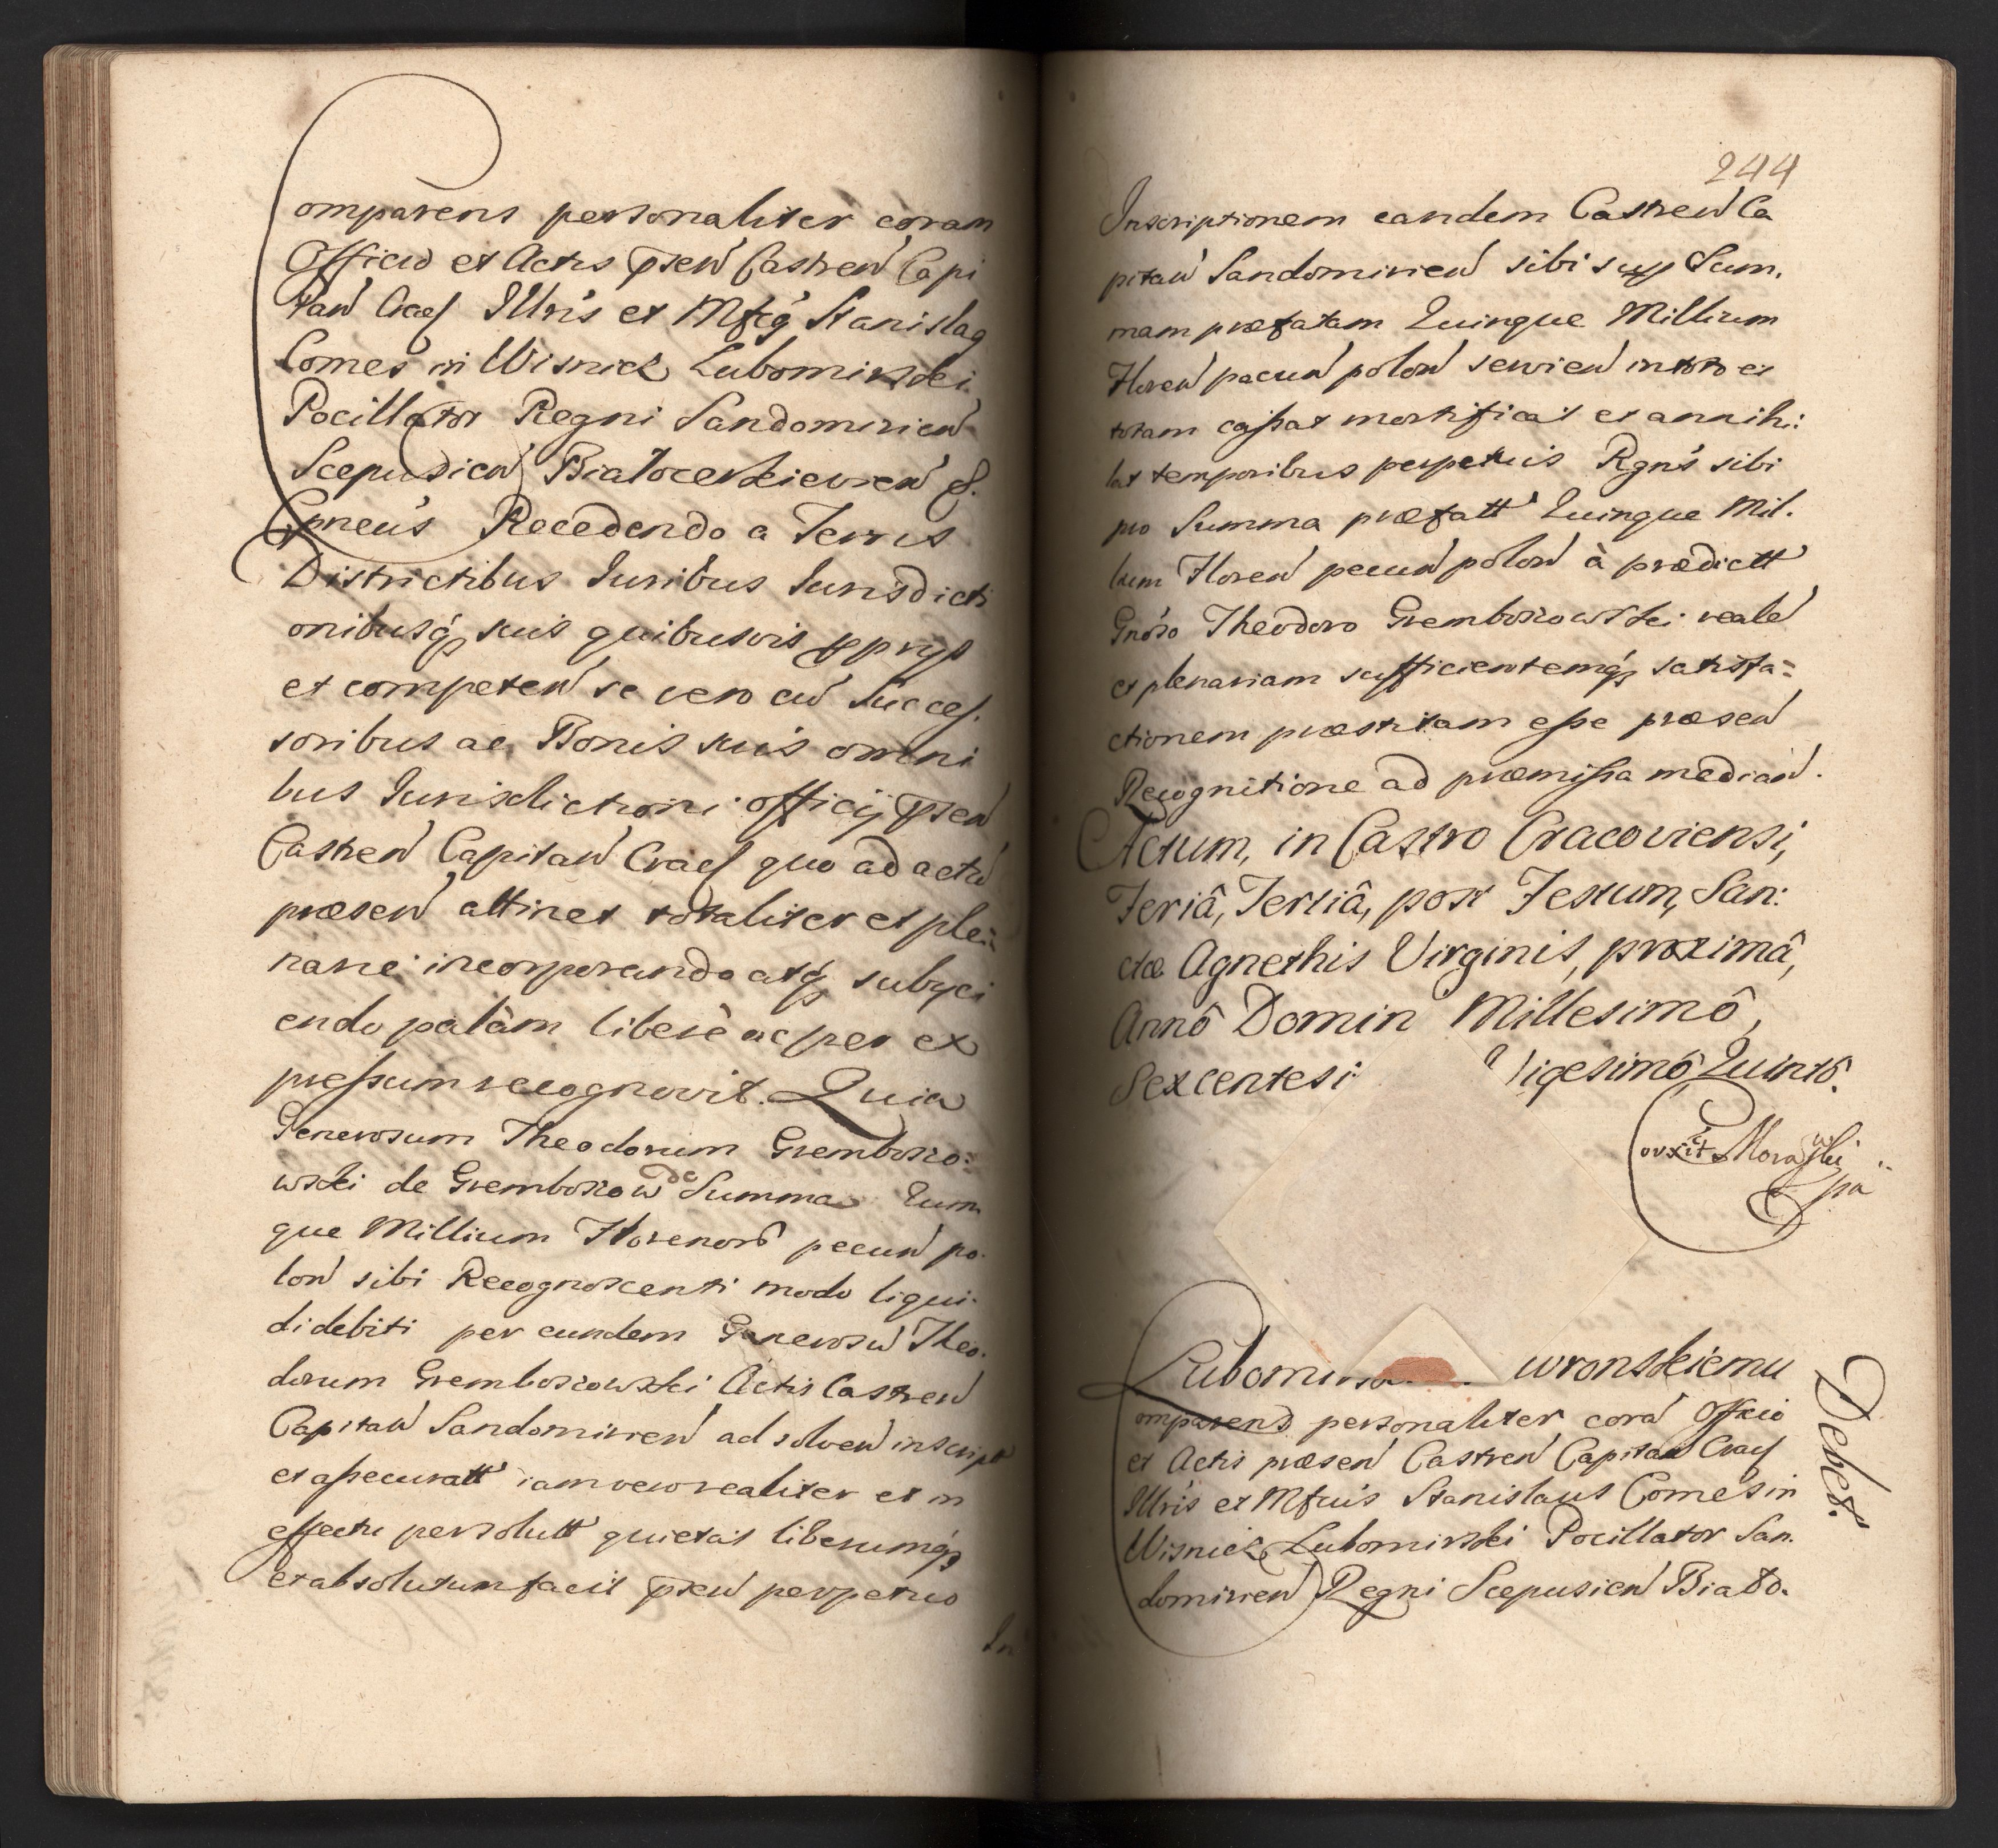 Comparens personaliter coram
Officio et Actis pñsen Castren Capi
tan Crac Illris et Mfcq Stanislaq
Comes in Wisnicz Lubomirski
Pocillator Regni Sandomirien
Scepusien Białocerkievien &.
Cpneus Recedendo a Terris
Districtibus Iuribus Iurisdicti
onibusq suis quibusvis pprys
et competen se vero cu Succes.
soribus ac Bonis suis omni
bus Iurisdictioni officij pñsen
Castren Capitan Crac quo ad actu
præsen attinet totaliter et ple=
narie incorporando atq subyci
endo palàm liberè ac per ex
pressum recognovit. Quia
Generosum Theodorum Gremboszo=
wski de Gremboszow de Summa Quin
que Millium Florenorũ pecun po.
lon sibi Recognoscenti modo liqui-
di debiti per eundem Generosu Theo.
dorum Gremboszowski Actis Castren
Capitan Sandomirien ad solven inscript
et assecuratt iam vero realiter et in
effectu persolutt quietat liberumq
et absolutum facit pñsen perpetuo
In
244
Inscriptionem eandem Castren Ca
pitan Sandomirien sibi sup Sum.
mam præfatam Quinque Millium
Floren pecun polon servien in toto et
totam cassat mortificat et annihi:
lat temporibus perpetuis Rgns sibi
pro Summa præfatt Quinque Mil.
lium Floren pecun polon à prædictt
Gnoso Theodoro Grembozowski reale
et plenariam sufficientemq satisfa=
ctionem præstitam esse præsen
Recognitione ad præmissa median.
Actum, in Castro Cracoviensi,
Feriâ, Tertiâ, post Festum, San:
ctæ Agnethis Virginis, proximâ,
Annô Domin Millesimô,
Sexcentesi: Vigesimô Quintô.
Corrxit Morawski
pa
Lubomirs wronskiemu
Debet.
Comparens personaliter corã Officio
et Actis præsen Castren Capitan Crac
Illris et Mfcuis Stanislaus Comes in
Wisnicz Lubomirski Pocillator San.
domirien Regni Scepusien Biało.